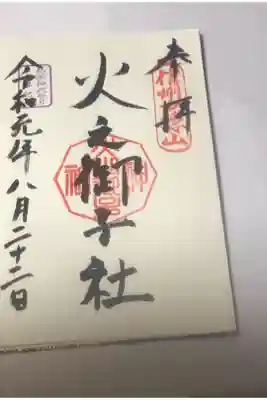 奉拝
火之御子社
令和元年八月二十二日